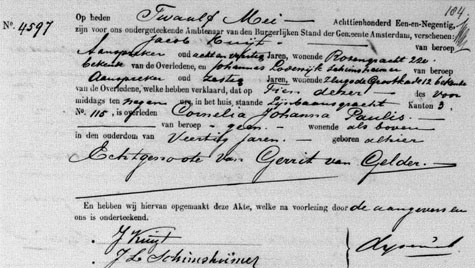 104.
Op heden Twaalf Mei Achttienhonderd Een-en-Negentig,
No. 4597 zijn voor ons ondergeteekende Ambtenaar van den Burgerlijken Stand der Gemeente Amsterdam, verschenen:
Jacob Kuijt van beroep
Aanspreker oud acht en vijftig Jaren, wonende Rozengracht 220
bekende van de Overledene, en Johannes Lodewijk Schimsheimer van beroep
Aanspreker oud zestig Jaren, wonende bekende
van de Overledene, welke hebben verklaard, dat op Tien dezer des voor
middags te negen ure, in het huis, staande Lijnbaansgracht Kanton 3.
No. 115, is overleden Cornelia Johanna Paulis
van beroep geen wonende als boven
in den ouderdom van Veertig jaren geboren alhier
Echtgenoote van Gerrit van Gelder.
En hebben wij hiervan opgemaakt deze Akte, welke na voorlezing door de aangevers en
ons is onderteekend.
J Kuijt
J L Schimsheimer